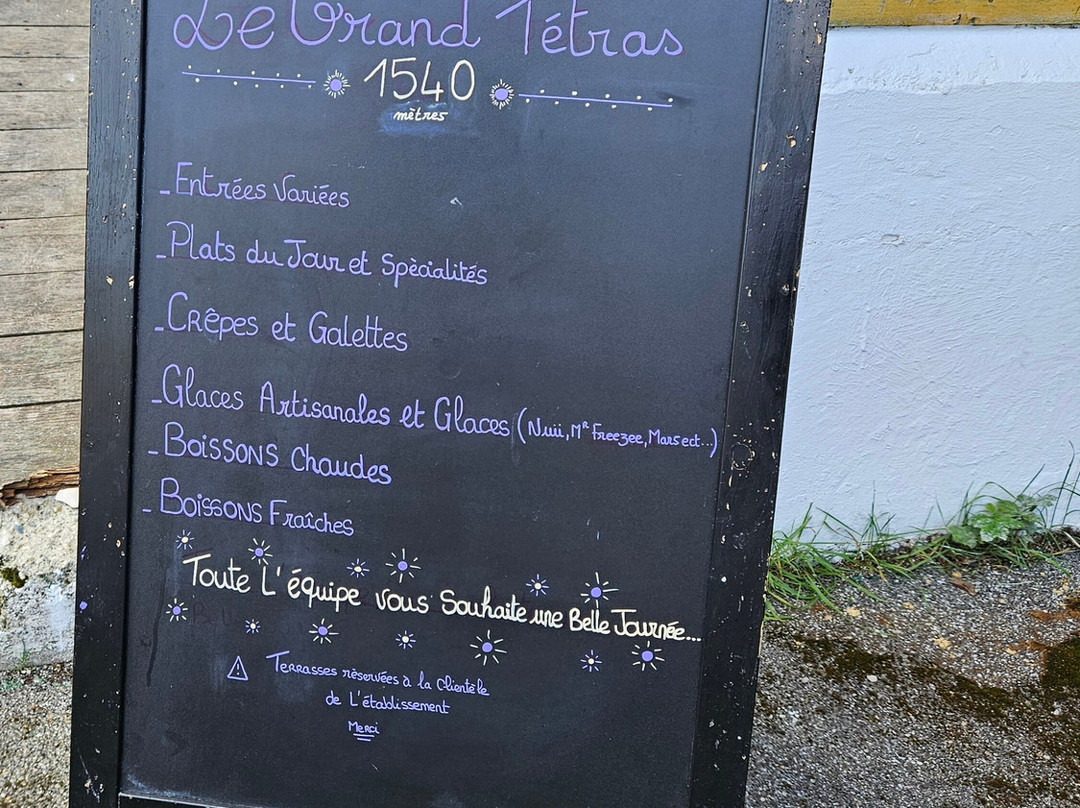 Le Grand Tétras
1540
mètres
_Entrées Variées
_Plats du Jour et Spècialités
_Crêpes et Galettes
_Glaces Artisanales et Glaces (Nuii, Mr Freezee, Mars ect...)
_Boissons Chaudes
_Boissons Fraîches
Toute L'équipe vous Souhaite une Belle Journée...
Terrasses rèservées à la Clientèle
de L'établissement
Merci